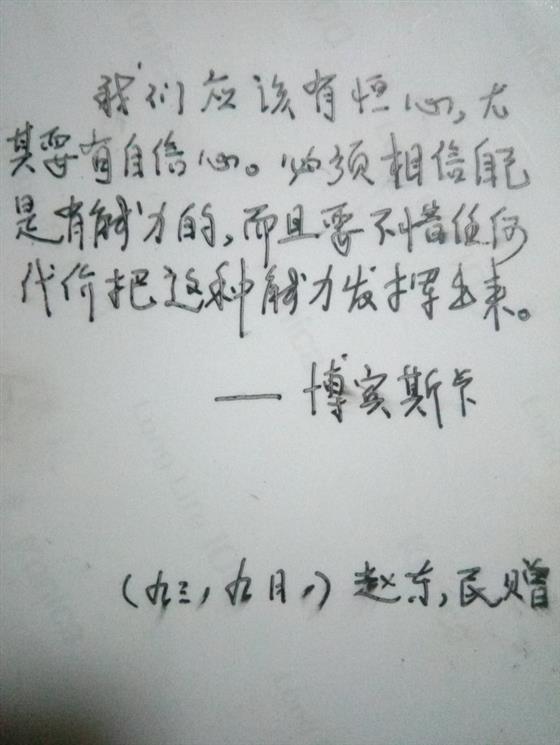 我们应该有恒心,尤
其要有自信心。必须相信自己
是有能力的,而且要不惜任何
代价把这种能力发挥出来。
——博宾斯卡
(九三,九月,)赵东,民赠